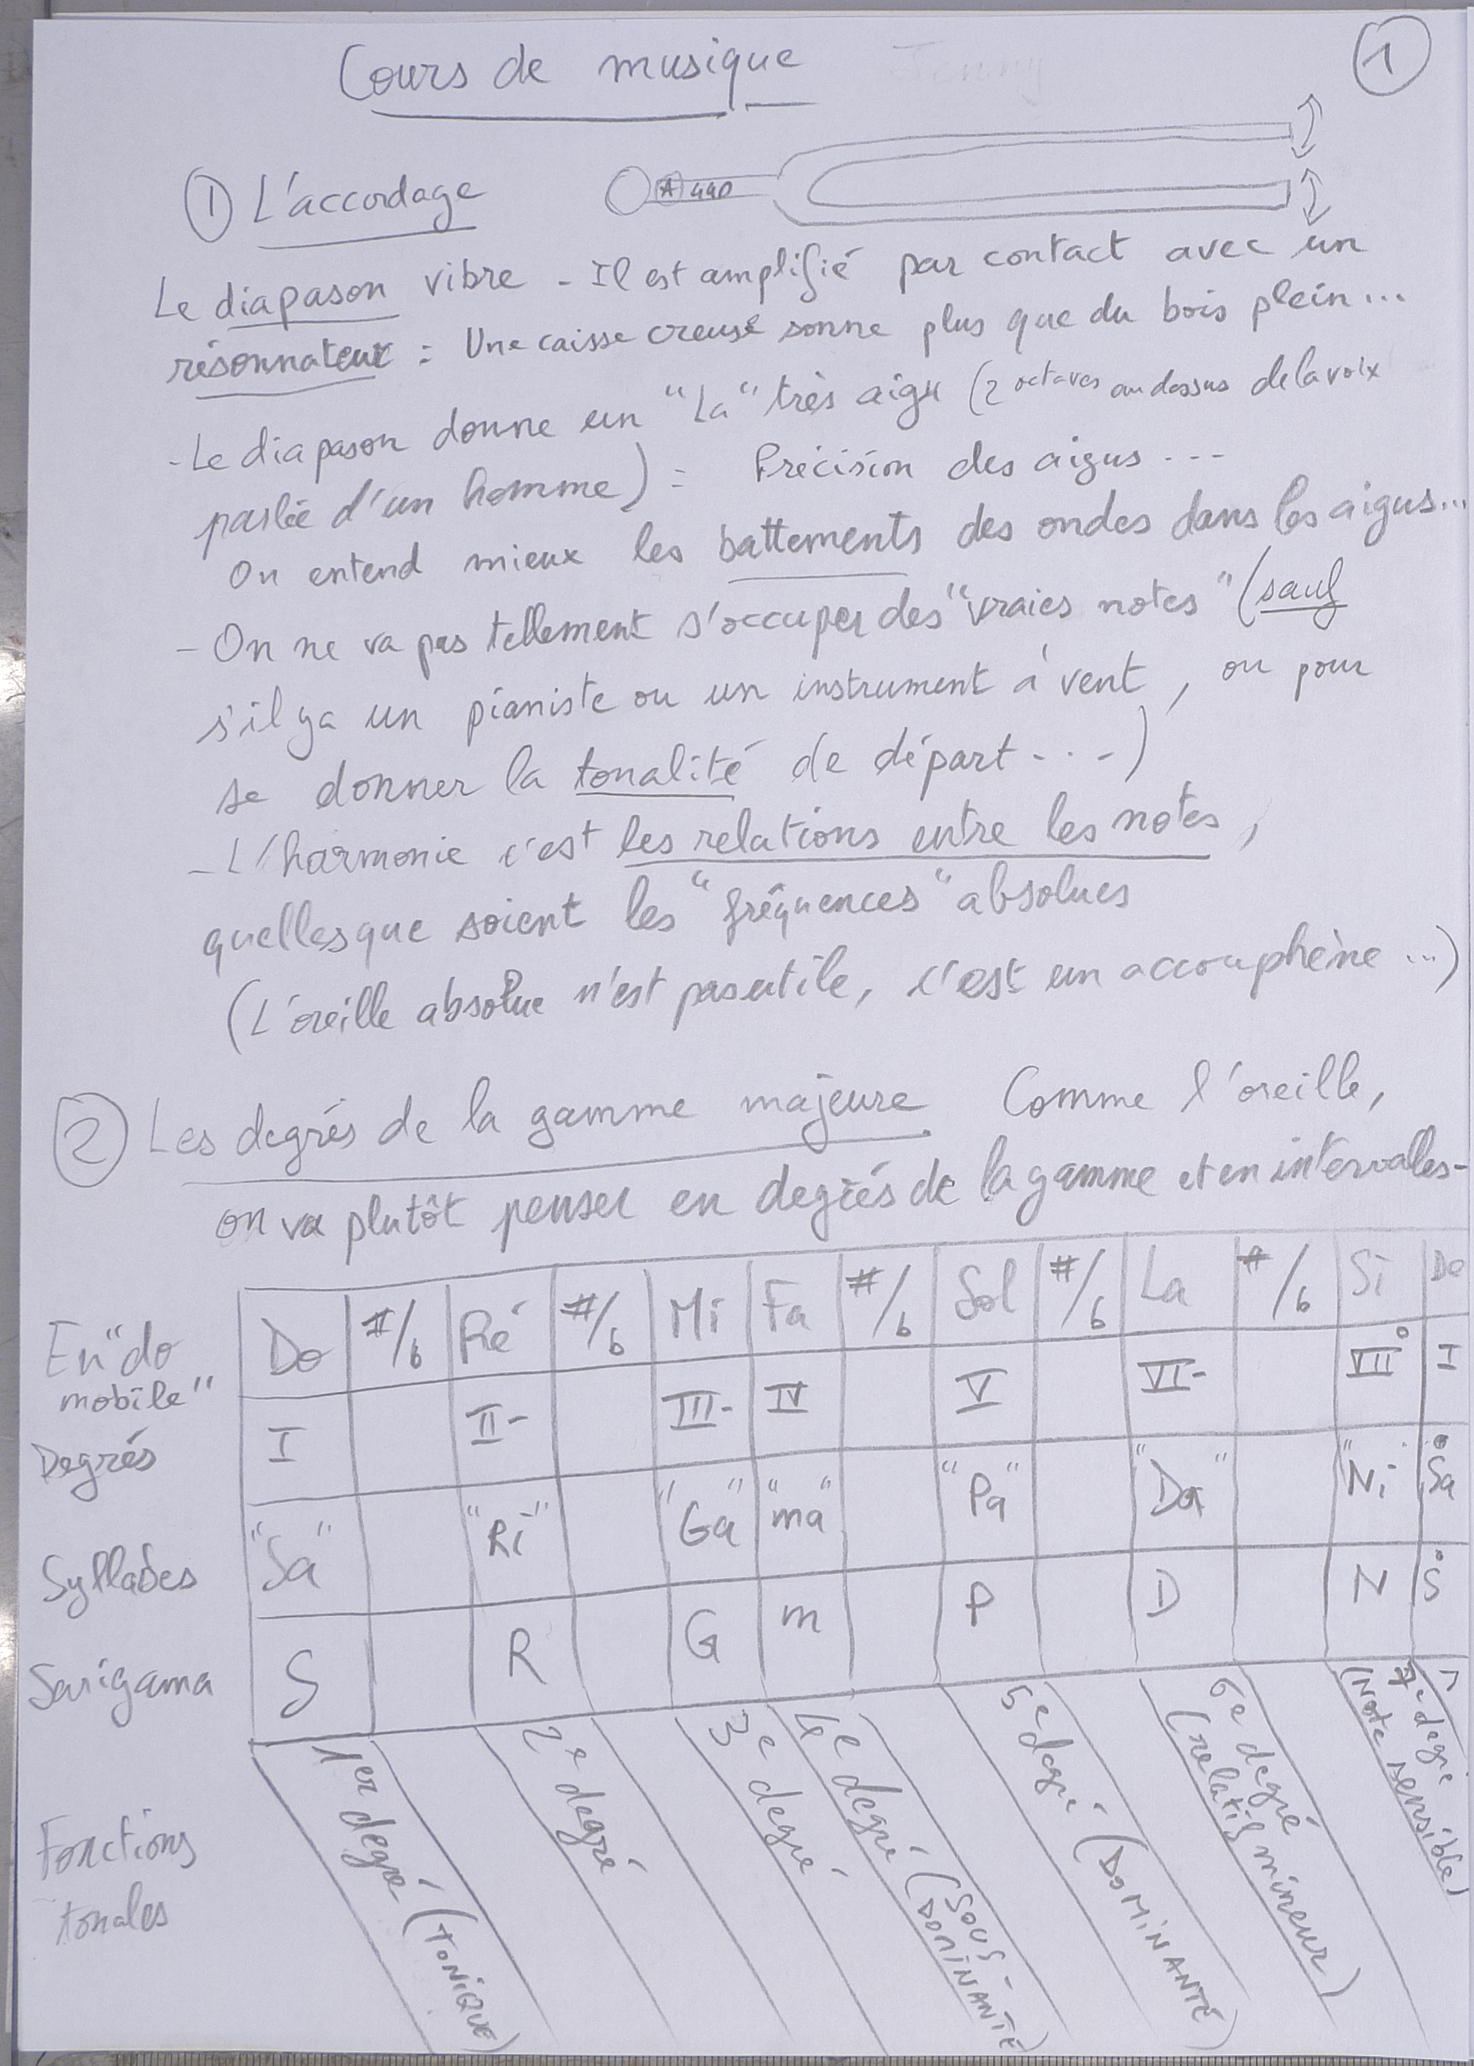 Cours de musique
Jenny
1
① L'accordage
A 440
Le diapason vibre - Il est amplifié par contact avec un
résonnateur : Une caisse creuse sonne plus que du bois plein...
- Le diapason donne un "La" très aigu (2 octaves au dessus de la voix
parlée d'un homme) = Précision des aigus ...
On entend mieux les battements des ondes dans les aigus...
- On ne va pas tellement s'occuper des "vraies notes" (sauf
s'il y a un pianiste ou un instrument à vent, ou pour
se donner la tonalité de départ ...)
- L'harmonie c'est les relations entre les notes,
quelles que soient les "fréquences" absolues
(L'oreille absolue n'est pas utile, c'est un accouphène ...)
② Les degrés de la gamme majeure Comme l'oreille,
on va plutôt penser en degrés de la gamme et en intervalles-
En "do mobile" Do #/b Ré #/b Mi Fa #/b Sol #/b La #/b Si Do
Degrés I II- III- IV V VI- VII° I
Syllabes "Sa" "Ri" "Ga" "ma" "Pa" "Da" "Ni" Sa
Sarigama S R G m P D N S
Fonctions
tonales
1er degré (TONIQUE)
2e degré
3e degré
4e degré (SOUS-
DOMINANTE)
5e degré (DOMINANTE)
6e degré
(relatif mineur)
7e degré
(Note sensible)